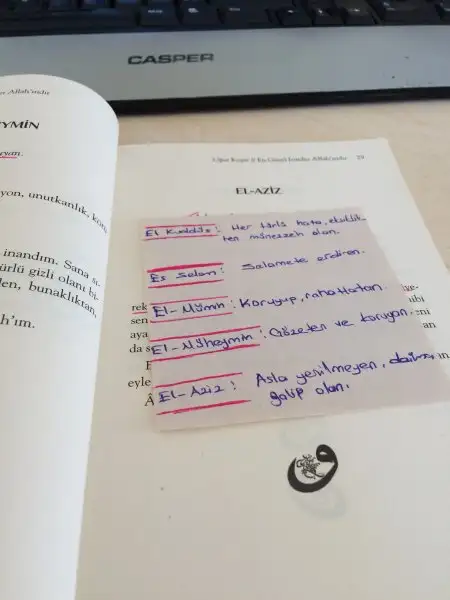 CASPER
Allah'ındır
YMİN
ryan.
yon, unutkanlık, koru
inandım. Sana sı
ürlü gizli olanı bi-
len, bunaklıktan,
h'ım.
Uğur Koşar || En Güzel İsimler Allah'ındır 29
EL-AZİZ
El Kuddüs: Her türlü hata, eksiklik-
ten münezzeh olan.
Es Selam: Selamete erdiren.
El-Mümin: Koruyup, rahatlatan.
El-Müheymin: Gözeten ve koruyan.
El-Aziz: Asla yenilmeyen, daima
galip olan.
rek
sen
aya
da s
eyle